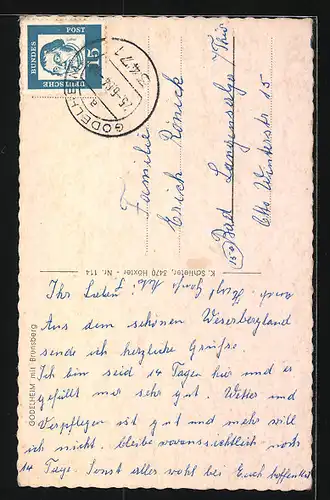 15
DEUTSCHE BUNDES POST
GODELHEIM
3471
a
Familie
Erich Rönick
(15a) Bad Langensalza /Thür
Otto Winterstr 15
K. Schlieter, 3470 Höxter - Nr. 114
GODELHEIM mit Brunsberg
Ihr Lieben!
Aus dem schönen Weserbergland
sende ich herzliche Grüße.
Ich bin seid 14 Tagen hier und es
gefällt mir sehr gut. Wetter und
Verpflegen ist gut und mehr will
ich nicht. bleibe voraussichtlich noch
14 Tage. Sonst alles wohl bei Euch hoffentlich